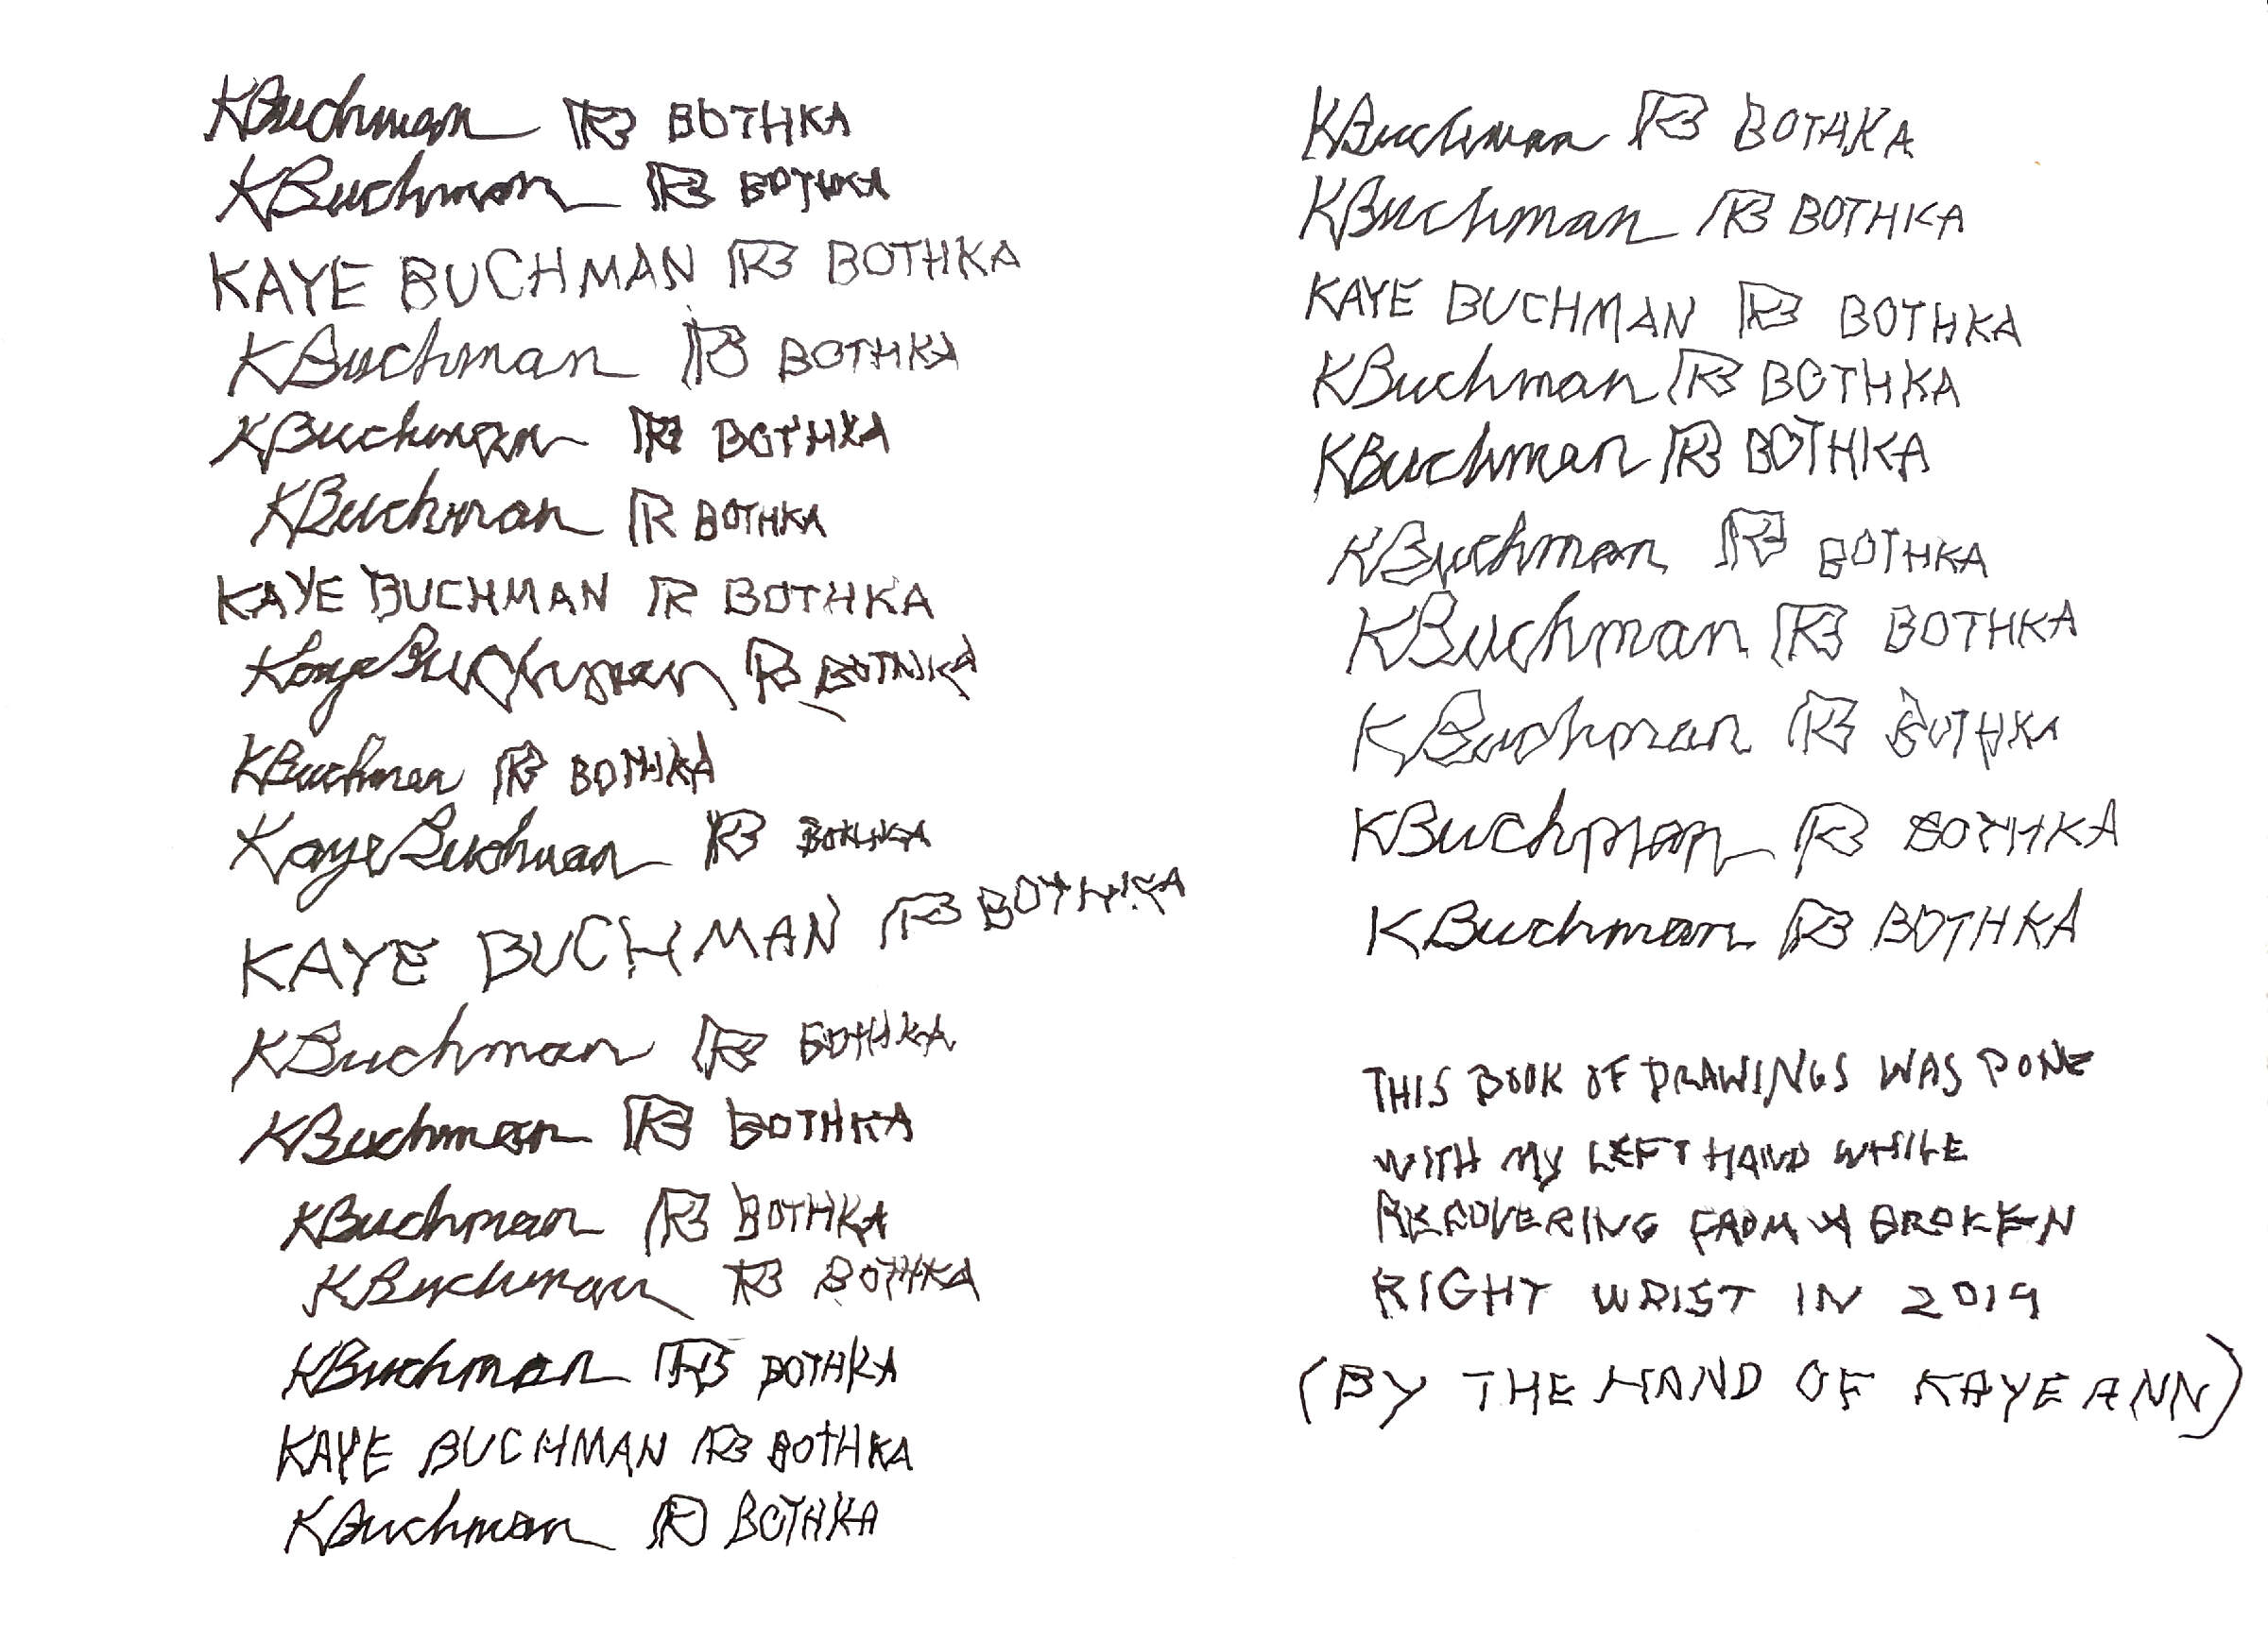 KBuchman RB BOTHKA
KBuchman RB BOTHKA
KAYE BUCHMAN RB BOTHKA
KBuchman RB BOTHKA
KBuchman RB BOTHKA
KBuchman R BOTHKA
KAYE BUCHMAN R BOTHKA
Kaye Buchman RB BOTHKA
KBuchman RB BOTHKA
Kaye Buchman RB BOTHKA
KAYE BUCHMAN RB BOTHKA
KBuchman RB BOTHKA
KBuchman RB BOTHKA
KBuchman RB BOTHKA
KBuchman RB BOTHKA
KBuchman RB BOTHKA
KAYE BUCHMAN RB BOTHKA
KBuchman R BOTHKA
KBuchman RB BOTHKA
KBuchman RB BOTHKA
KAYE BUCHMAN RB BOTHKA
KBuchman RB BOTHKA
KBuchman RB BOTHKA
KBuchman RB BOTHKA
KBuchman RB BOTHKA
KBuchman RB BOTHKA
KBuchman RB BOTHKA
KBuchman RB BOTHKA
THIS BOOK OF DRAWINGS WAS DONE
WITH MY LEFT HAND WHILE
RECOVERING FROM A BROKEN
RIGHT WRIST IN 2019
(BY THE HAND OF KAYE ANN)